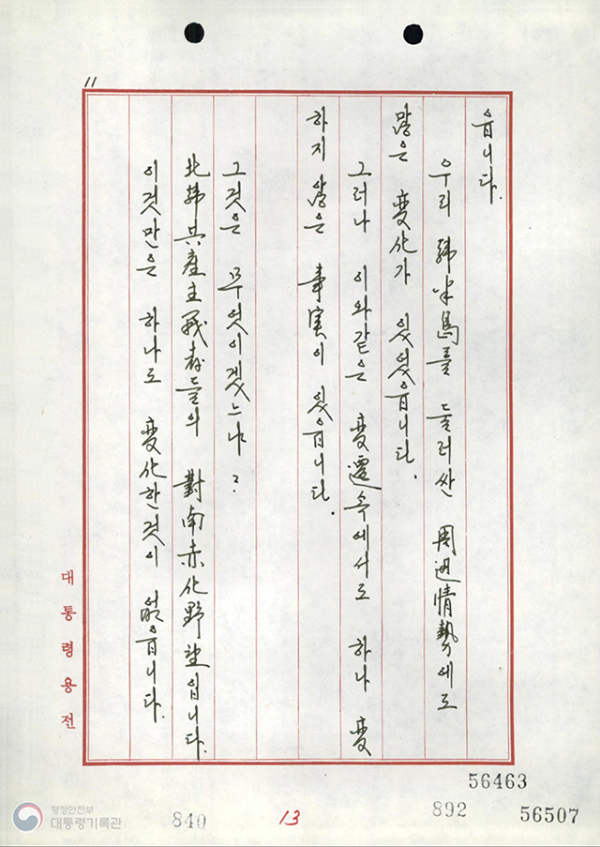 11
읍니다.
우리 韓半島를 둘러싼 周辺情勢에도
많은 変化가 있었읍니다.
그러나 이와같은 変遷속에서도 하나 変
하지 않은 事実이 있읍니다.
그것은 무엇이겠느냐?
北韓共産主義者들의 對南赤化野望입니다.
이것만은 하나도 変化한것이 없읍니다.
대통령용전
56463
행정안전부
대통령기록관
840
13
892
56507